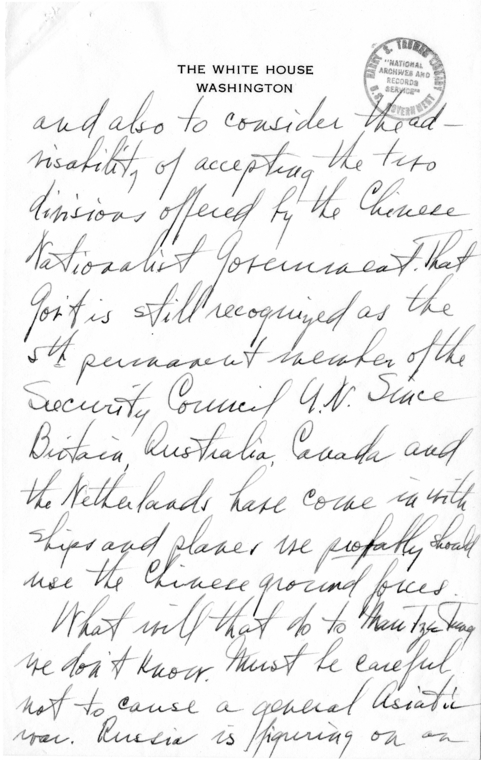 THE WHITE HOUSE
WASHINGTON
HARRY S. TRUMAN LIBRARY
"NATIONAL
ARCHIVES AND
RECORDS
SERVICE"
U.S. GOVERNMENT
and also to consider the ad-
visability of accepting the two
divisions offered by the Chinese
Nationalist Government. That
Gov't is still recognized as the
5th permanent member of the
Security Council U.N. Since
Britain, Australia, Canada and
the Netherlands have come in with
ships and planes we probably should
use the Chinese ground forces.
What will that do to Mau Tze Tung
we don't know. Must be careful
not to cause a general Asiatic
war. Russia is figuring on an